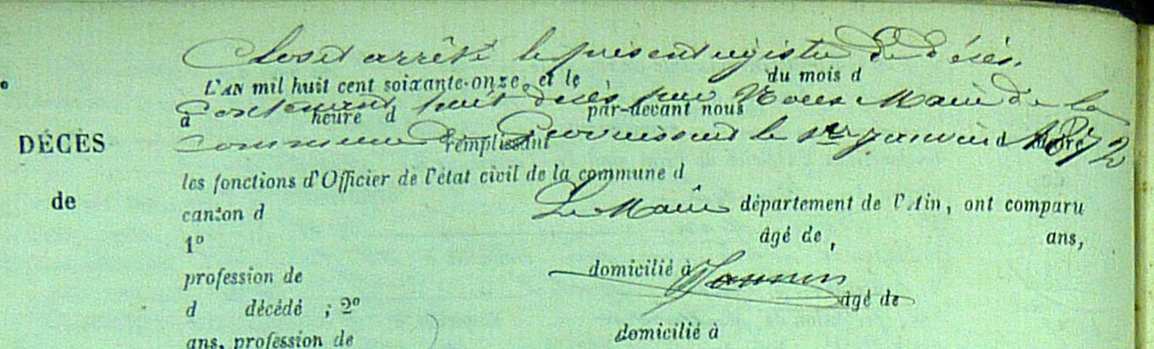 Clos et arrêté le présent registre de décès.
L'AN mil huit cent soixante-onze, et le du mois d
Contenant huit décès par Nous Maire de la
à heure d par-devant nous
DÉCÈS
commune le 1er janvier 1872
remplissant
les fonctions d'Officier de l'état civil de la commune d
de
canton d Le Maire département de l'Ain, ont comparu
1° âgé de , ans,
profession de domicilié à
d décédé ; 2° âgé de
ans, profession de domicilié à